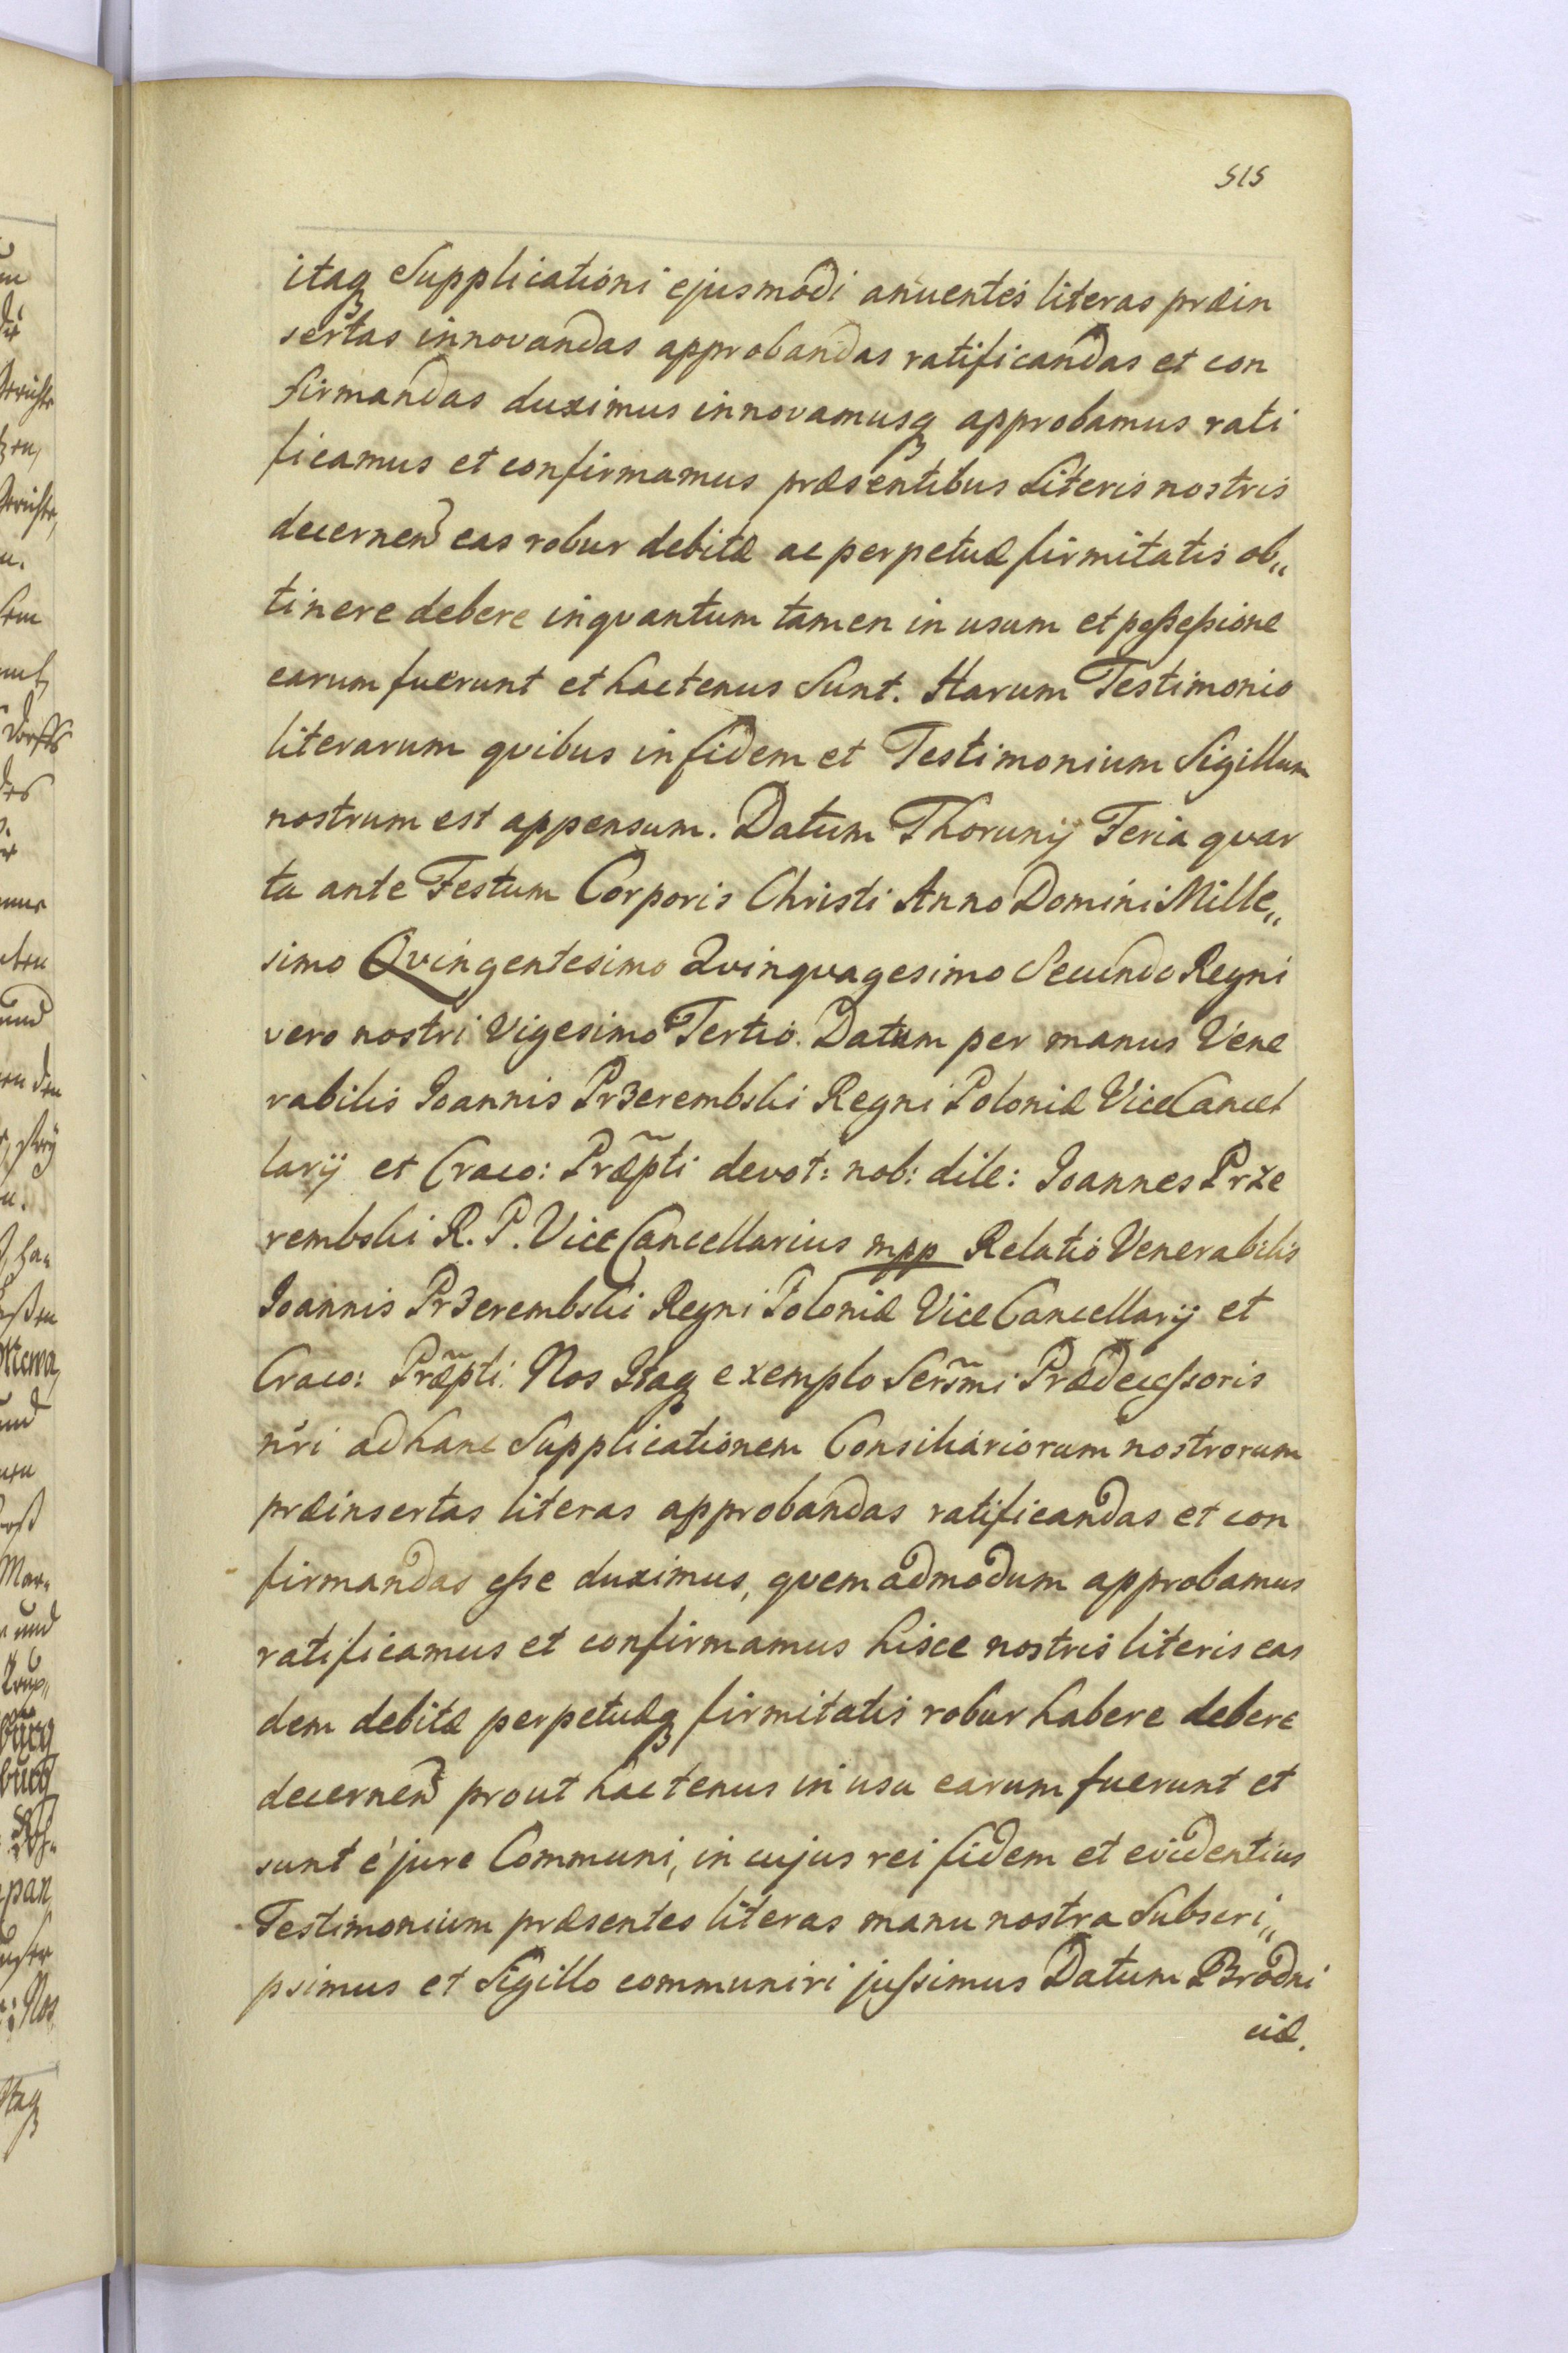 515
itaq Supplicationi ejusmodi anuentes literas præin
sertas innovandas approbandas ratificandas et con
firmandas duximus innovamusq approbamus rati
ficamus et confirmamus præsentibus Literis nostris
decernen eas robur debitæ ac perpetuæ firmitatis ob„
tinere debere inqvantum tamen in usum et poßeßione
earum fuerunt et hactenus Sunt. Harum Testimonio
literarum qvibus in fidem et Testimonium Sigillum
nostrum est appensum. Datum Thorunij Feria qvar
ta ante Festum Corporis Christi Anno Domini Mille„
simo Qvingentesimo Qvinqvagesimo Secundo Regni
vero nostri Vigesimo Tertio. Datum per manus Vene
rabilis Joannis Pr3erembski Regni Poloniæ ViceCancel
larij et Craco: Præp̃ti devot: nob: dile: Joannes Prze
rembski R. P. ViceCancellarius mpp Relatio Venerabilis
Joannis Pr3erembski Regni Poloniæ ViceCancellarij et
Craco: Præp̃ti. Nos Itaq exemplo Serm̃i Prædeceßoris
nr̃i ad hanc Supplicationem Consiliariorum nostrorum
præinsertas literas approbandas ratificandas et con
firmandas eße duximus, qvemadmodum approbamus
ratificamus et confirmamus hisce nostris literis eas
dem debitæ perpetuæq firmitatis robur habere debere
decernen prout hactenus in usu earum fuerunt et
sunt é jure Communi, in cujus rei fidem et evidentius
Testimonium præsentes literas manu nostra Subscri„
psimus et Sigillo communiri jußimus Datum Brodni
ciæ.